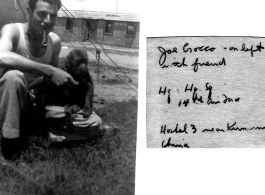 Joe Crocco - on left
with friend
Hq. Hq. Sq
14th
Hostel 3 near Kunm
China